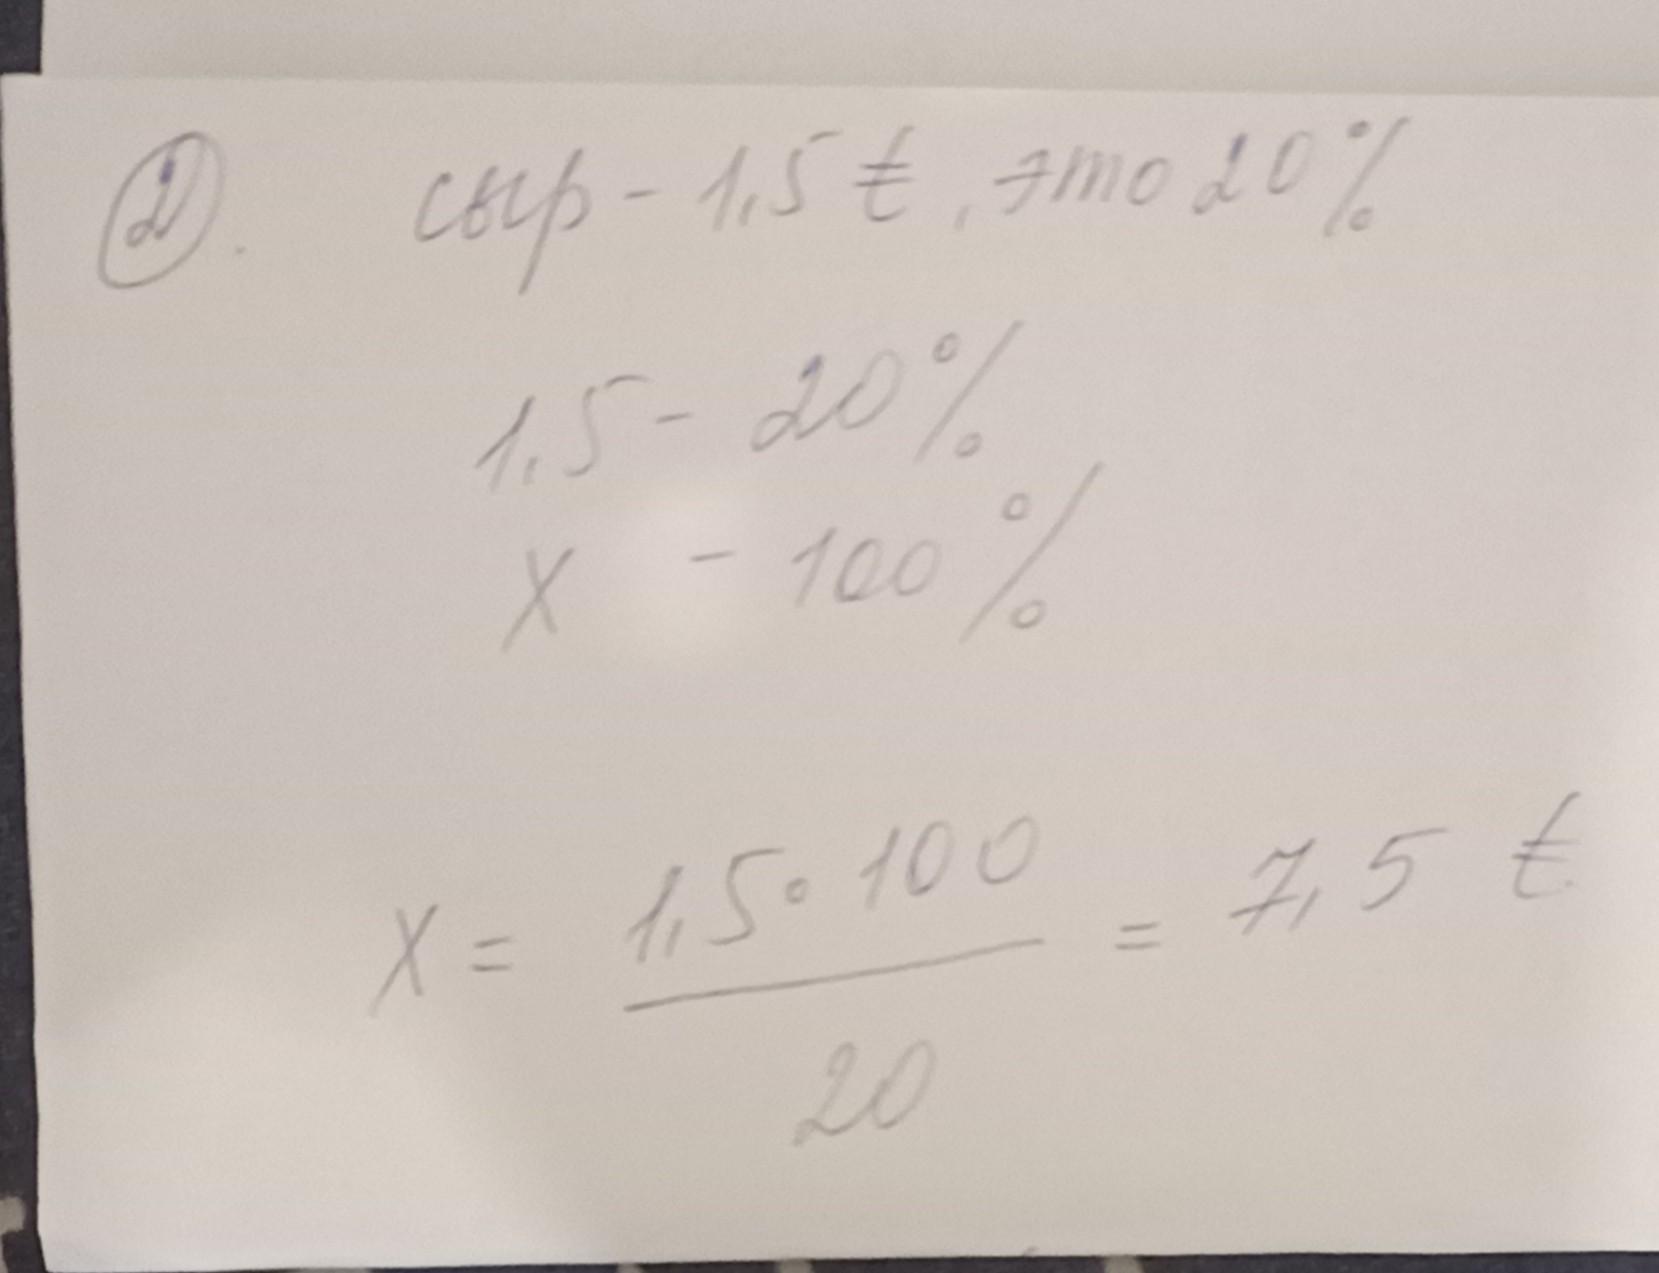 2. сыр - 1,5 t, это 20%
1,5 - 20%
x - 100%
x = 1,5 · 100 / 20 = 7,5 t